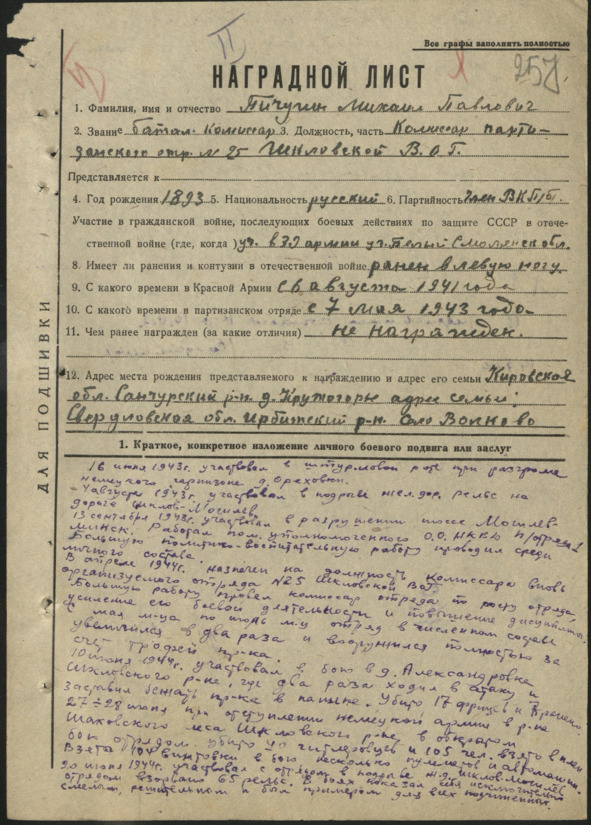 II
257
Все графы заполнять полностью
НАГРАДНОЙ ЛИСТ
1. Фамилия, имя и отчество Пичугин Михаил Павлович
2. Звание батал. Комиссар 3. Должность, часть Комиссар парти-
занского отр. N 25 Шкловской В.О.Г.
Представляется к
4. Год рождения 1893 5. Национальность русский 6. Партийность член ВКП/б.
Участие в гражданской войне, последующих боевых действиях по защите СССР в отече-
ственной войне (где, когда) уч. в 39 армии уч. Белый Смоленск обл.
8. Имеет ли ранения и контузии в отечественной войне ранен в левую ногу
9. С какого времени в Красной Армии с 6 августа 1941 года
10. С какого времени в партизанском отряде с 7 мая 1943 года
11. Чем ранее награжден (за какие отличия) не награжден.
12. Адрес места рождения представляемого к награждению и адрес его семьи Кировская
обл. Санчурский р-н д. Крутогорье адрес семьи:
Свердловская обл. Ирбитский р-н. село Волково
ДЛЯ ПОДШИВКИ
1. Краткое, конкретное изложение личного боевого подвига или заслуг
16 июня 1943г. участвовал в штурмовой роте при разгроме
немецкого гарнизона д. Ореховки.
4 августа 1943г. участвовал в подрыве жел. дор. рельс на
дороге Шклов-Могилев.
13 сентября 1943г. участвовал в разрушении шоссе Могилев-
Минск. Работал пом. уполномоченного О.О. НКВД п/отряда
Большую политико-воспитательную работу проводил среди
личного состава.
В апреле 1944г. назначен на должность комиссара вновь
организуемого отряда N 25 Шкловской ВОГ.
Большую работу провел комиссар отряда по росту отряда,
усилению его боевой деятельности и повышение дисциплины.
С мая м-ца по июль м-ц отряд в численном составе
увеличился в два раза и вооружился полностью за
счет трофей пр-ка.
10 июня 1944г. участвовал в бою в д. Александровка
Шкловского р-не, где два раза ходил в атаку и
заставил бежать пр-ка в панике. Убито 17 фрицев и
27-28 июня при отступлении немецкой армии в р-не
Шаховского леса Шкловского р-не, в открытом
бою отрядом убито гитлеровцев и 105 чел. взято в плен
Взята 104 винтовки в бою несколько пулеметов и автомашин.
20 июня 1944г. участвовал с отрядом в подрыве ж.д. Шклов-Могилев
отрядом взорвано 65 рельс. В боях показал себя исключительно
смелым, решительным и был примером для всех подчиненных.